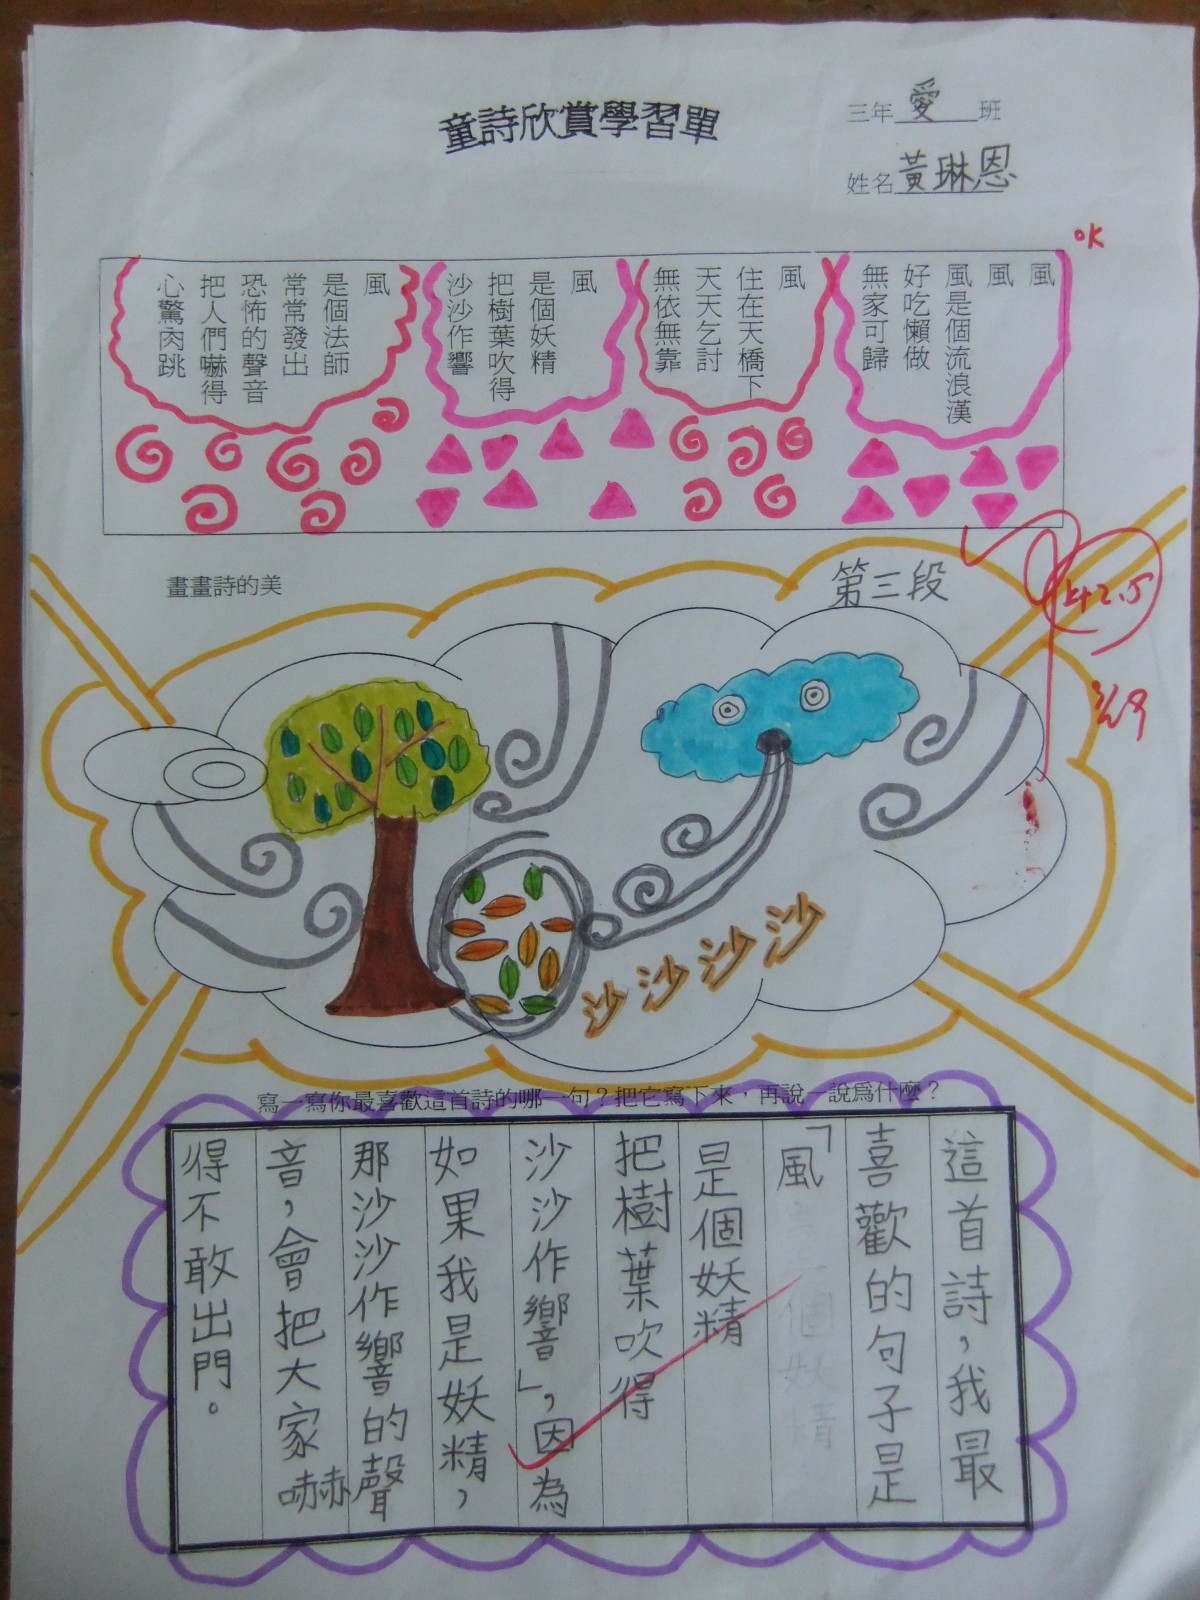 童詩欣賞學習單
三年愛班
姓名黃琳恩
OK
風
風
風是個流浪漢
好吃懶做
無家可歸
風
住在天橋下
天天乞討
無依無靠
風
是個妖精
把樹葉吹得
沙沙作響
風
是個法師
常常發出
恐怖的聲音
把人們嚇得
心驚肉跳
畫畫詩的美
第三段
沙沙沙沙
寫一寫你最喜歡這首詩的哪一句？把它寫下來，再說一說為什麼？
這首詩，我最
喜歡的句子是
「風
是個妖精
把樹葉吹得
沙沙作響」，因為
如果我是妖精，
那沙沙作響的聲
音，會把大家嚇
得不敢出門。